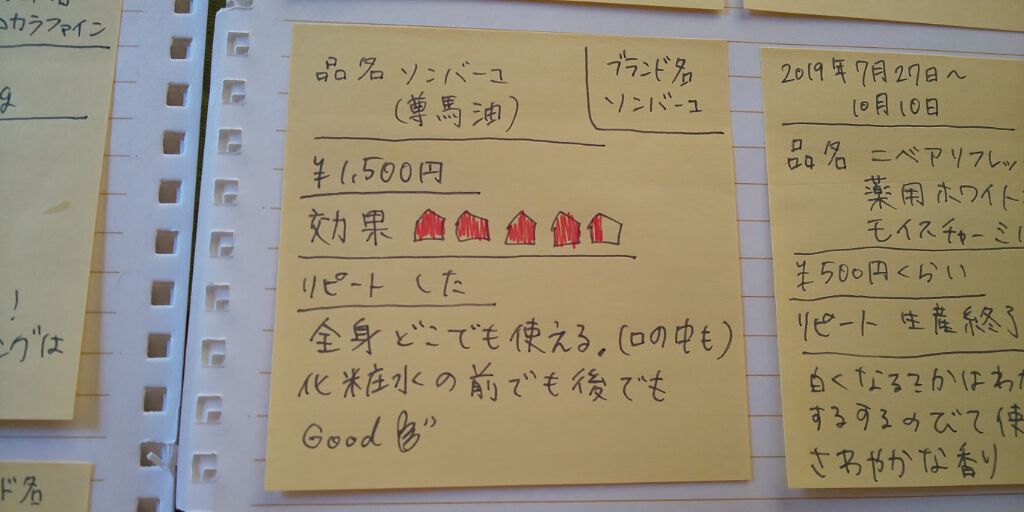 カラファイン
g
!
ングは
ド名
品名 ソンバーユ
(尊馬油)
ブランド名
ソンバーユ
¥1,500円
効果
リピート した
全身どこでも使える。(口の中も)
化粧水の前でも後でも
Good
2019年7月27日~
10月10日
品名 ニベアリフレッ
薬用ホワイト
モイスチャーミル
¥500円くらい
リピート 生産終了
白くなるかはわか
するするのびて使
さわやかな香り